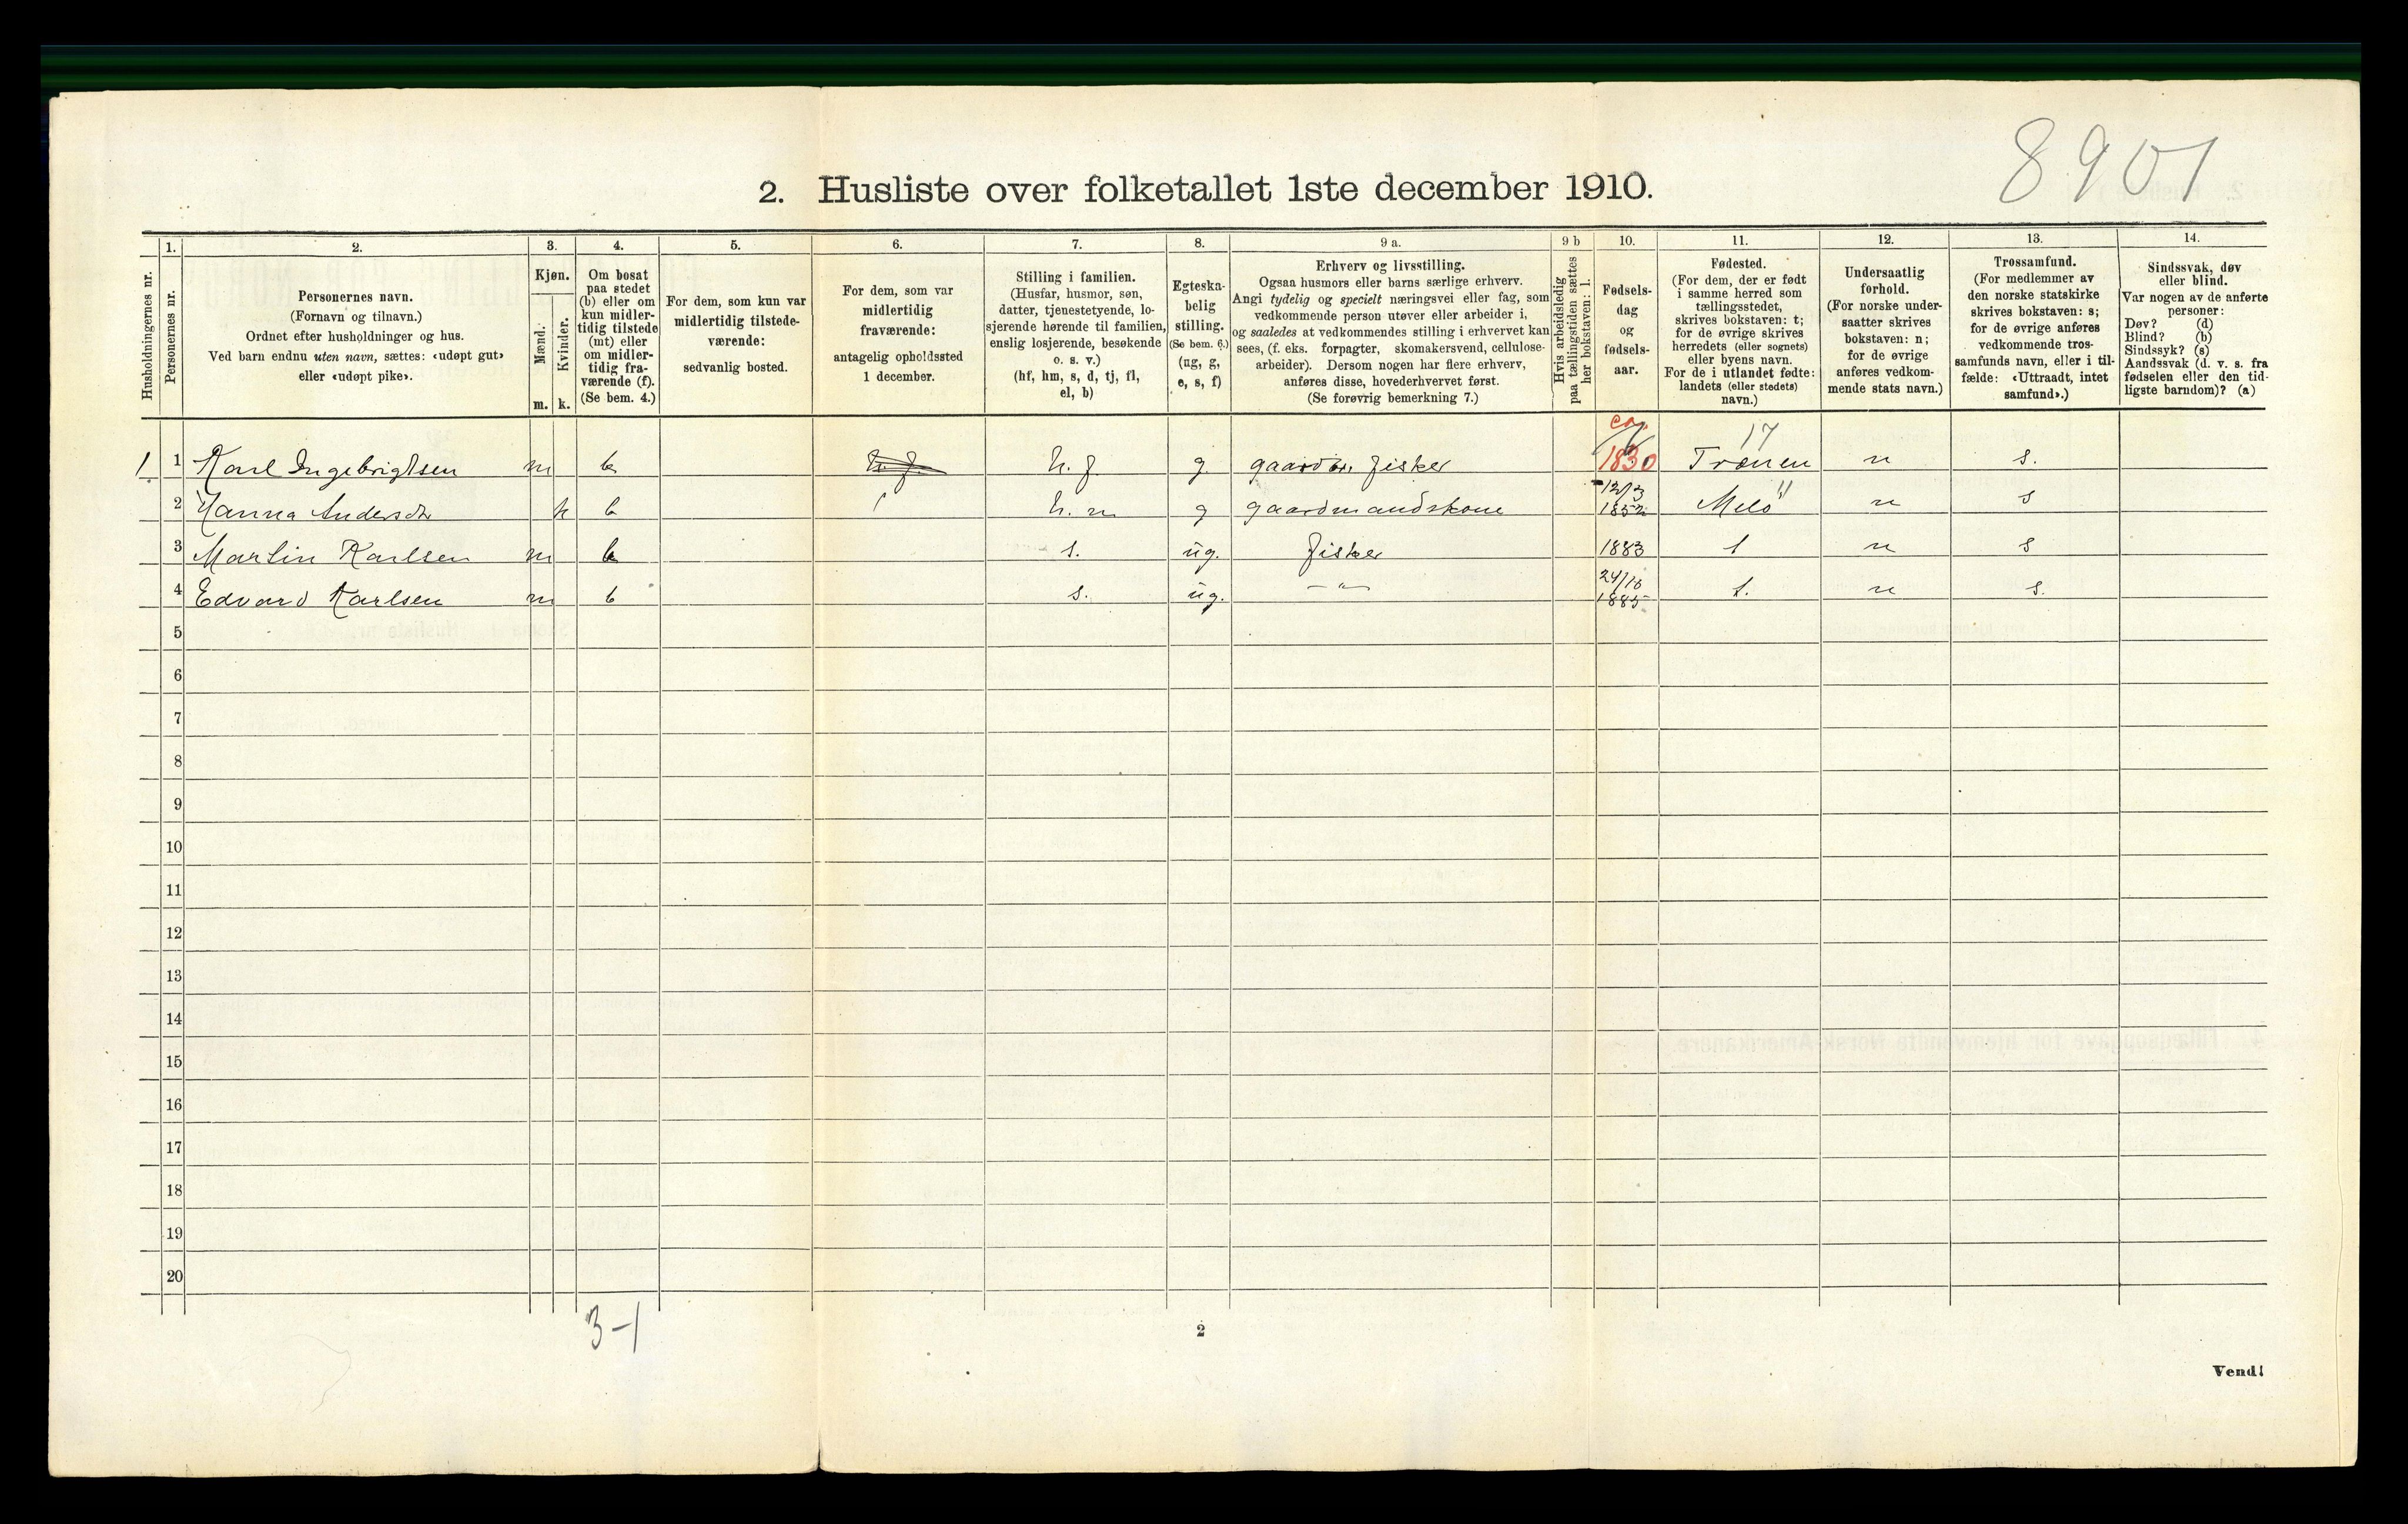 8901
2. Husliste over folketallet 1ste december 1910.
Husholdningernes nr.
1.
Personernes nr.
2.
Personernes navn.
(Fornavn og tilnavn.)
Ordnet efter husholdninger og hus.
Ved barn endnu uten navn, sættes: «udøpt gut»
eller «udøpt pike».
3.
Kjøn.
Mænd.
Kvinder.
m. k.
4.
Om bosat
paa stedet
(b) eller om
kun midler-
tidig tilstede
(mt) eller
om midler-
tidig fra-
værende (f).
(Se bem. 4.)
5.
For dem, som kun var
midlertidig tilstede-
værende:
sedvanlig bosted.
6.
For dem, som var
midlertidig
fraværende:
antagelig opholdssted
1 december.
7.
Stilling i familien.
(Husfar, husmor, søn,
datter, tjenestetyende, lo-
sjerende hørende til familien,
enslig losjerende, besøkende
o. s. v.)
(hf, hm, s, d, tj, fl,
el, b)
8.
Egteska-
belig
stilling.
(Se bem. 6.)
(ug, g,
e, s, f)
9 a.
Erhverv og livsstilling.
Ogsaa husmors eller barns særlige erhverv.
Angi tydelig og specielt næringsvei eller fag, som
vedkommende person utøver eller arbeider i,
og saaledes at vedkommendes stilling i erhvervet kan
sees, (f. eks. forpagter, skomakersvend, cellulose-
arbeider). Dersom nogen har flere erhverv,
anføres disse, hovederhvervet først.
(Se forøvrig bemerkning 7.)
9 b
Hvis arbeidsledig
paa tællingstiden sættes
her bokstaven: l.
10.
Fødsels-
dag
og
fødsels-
aar.
11.
Fødested.
(For dem, der er født
i samme herred som
tællingsstedet,
skrives bokstaven: t;
for de øvrige skrives
herredets (eller sognets)
eller byens navn.
For de i utlandet fødte:
landets (eller stedets)
navn.)
12.
Undersaatlig
forhold.
(For norske under-
saatter skrives
bokstaven: n;
for de øvrige
anføres vedkom-
mende stats navn.)
13.
Trossamfund.
(For medlemmer av
den norske statskirke
skrives bokstaven: s;
for de øvrige anføres
vedkommende tros-
samfunds navn, eller i til-
fælde: «Uttraadt, intet
samfund».)
14.
Sindssvak, døv
eller blind.
Var nogen av de anførte
personer:
Døv? (d)
Blind? (b)
Sindssyk? (s)
Aandssvak (d. v. s. fra
fødselen eller den tid-
ligste barndom)? (a)
1 1 Karl Ingebrigtsen m b h. f. h. f. g. fisker 1830 17 Trænen n s.
2 Hanna Andersdtr k b h. m g gaardmandskone 12/3 1852 11 Melö n s
3 Martin Karlsen m b s. ug. fisker 1883 t n s
4 Edvard Karlsen m b s. ug. –"– 24/10 1885 t. n s.
5
6
7
8
9
10
11
12
13
14
15
16
17
18
19
20
3–1
2
Vend!